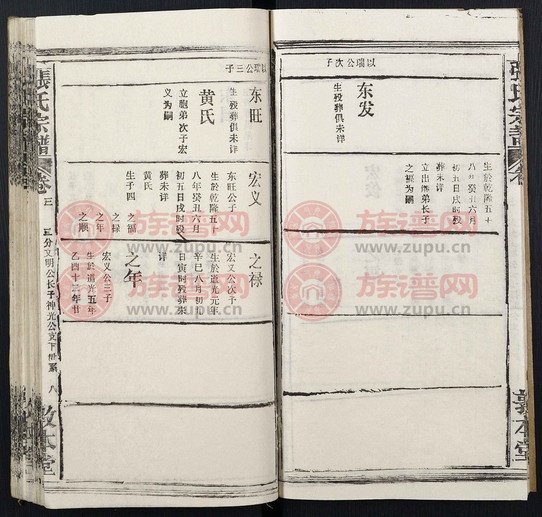 張氏宗譜
以瑞公次子
东发
生殁葬俱未详
生於乾隆五十
八年癸丑六月
初五日戌时殁
葬未详
立出继弟长子
之福为嗣
以瑞公三子
东旺
生殁葬俱未详
黄氏
立胞弟次子宏
义为嗣
宏义
东旺公子
生於乾隆五十
八年癸丑六月
初五日戌时殁
葬未详
黄氏
生子四
之福
之禄
之年
之顺
之禄
宏义公次子
生於道光元年
辛巳八月初十
日寅时殁葬未
详
之年
宏义公三子
生於道光五年
乙酉十二年廿
張氏宗譜
卷三
三分文明公长子神光公支下世系
八
敦本堂
族谱网
www.zupu.cn